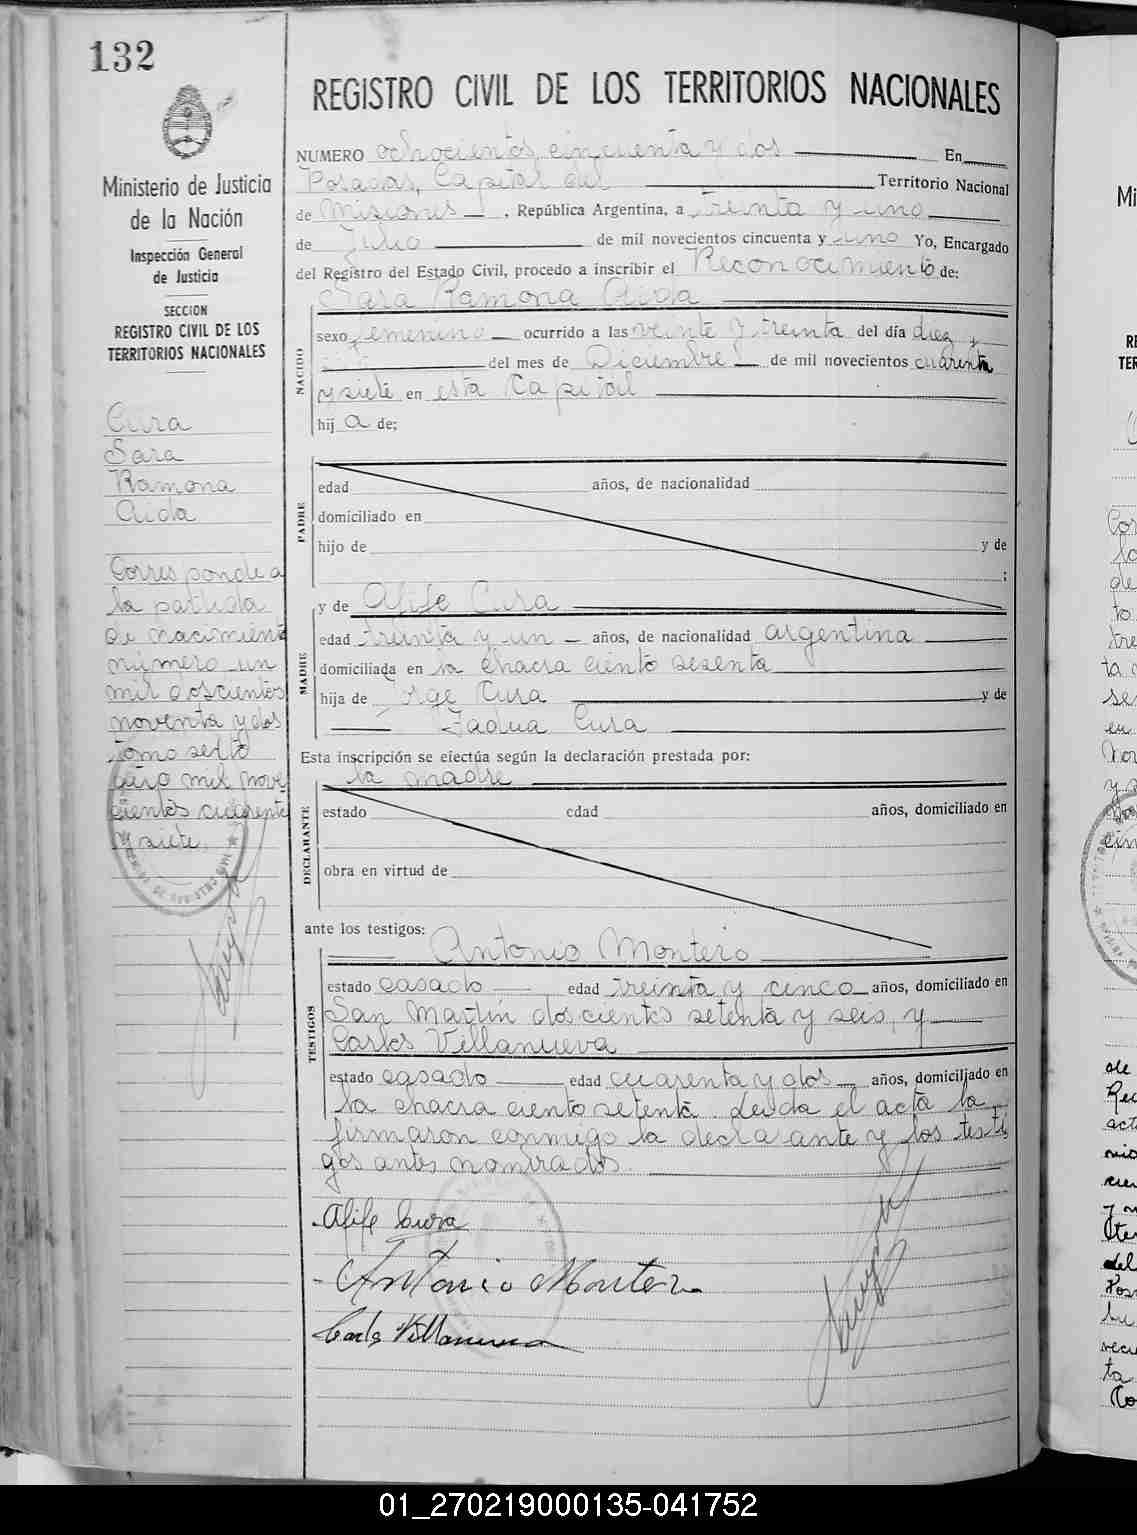 132
Ministerio de Justicia
de la Nación
Inspección General
de Justicia
SECCION
REGISTRO CIVIL DE LOS
TERRITORIOS NACIONALES
Cura
Sara
Ramona
Aida
Corresponde a
la partida
de nacimiento
número un
mil doscientos
noventa y dos
tomo sexto
año mil nove
cientos cuarenta
y siete.
REGISTRO CIVIL DE LOS TERRITORIOS NACIONALES
NUMERO ochocientos cincuenta y dos En
Posadas, Capital del Territorio Nacional
de Misiones, República Argentina, a treinta y uno
de Julio de mil novecientos cincuenta y uno Yo, Encargado
del Registro del Estado Civil, procedo a inscribir el Reconocimiento de:
Sara Ramona Aida
NACIDO
sexo femenino ocurrido a las veinte y treinta del día diez y
del mes de Diciembre de mil novecientos cuarenta
y siete en esta Capital
hij a de;
PADRE
edad años, de nacionalidad
domiciliado en
hijo de y de
;
MADRE
y de Afife Cura
edad treinta y un años, de nacionalidad argentina
domiciliada en la chacra ciento sesenta
hija de Jorge Cura y de
Fadua Cura
Esta inscripción se efectúa según la declaración prestada por:
la madre
DECLARANTE
estado edad años, domiciliado en
obra en virtud de
ante los testigos:
Antonio Montero
TESTIGOS
estado casado edad treinta y cinco años, domiciliado en
San Martín doscientos setenta y seis, y
Carlos Villanueva
estado casado edad cuarenta y dos años, domiciliado en
la chacra ciento setenta. Leida el acta la
firmaron conmigo la declarante y los testi
gos antes nombrados.
Afife Cura
Antonio Montero
Carlos Villanueva
01_270219000135-041752